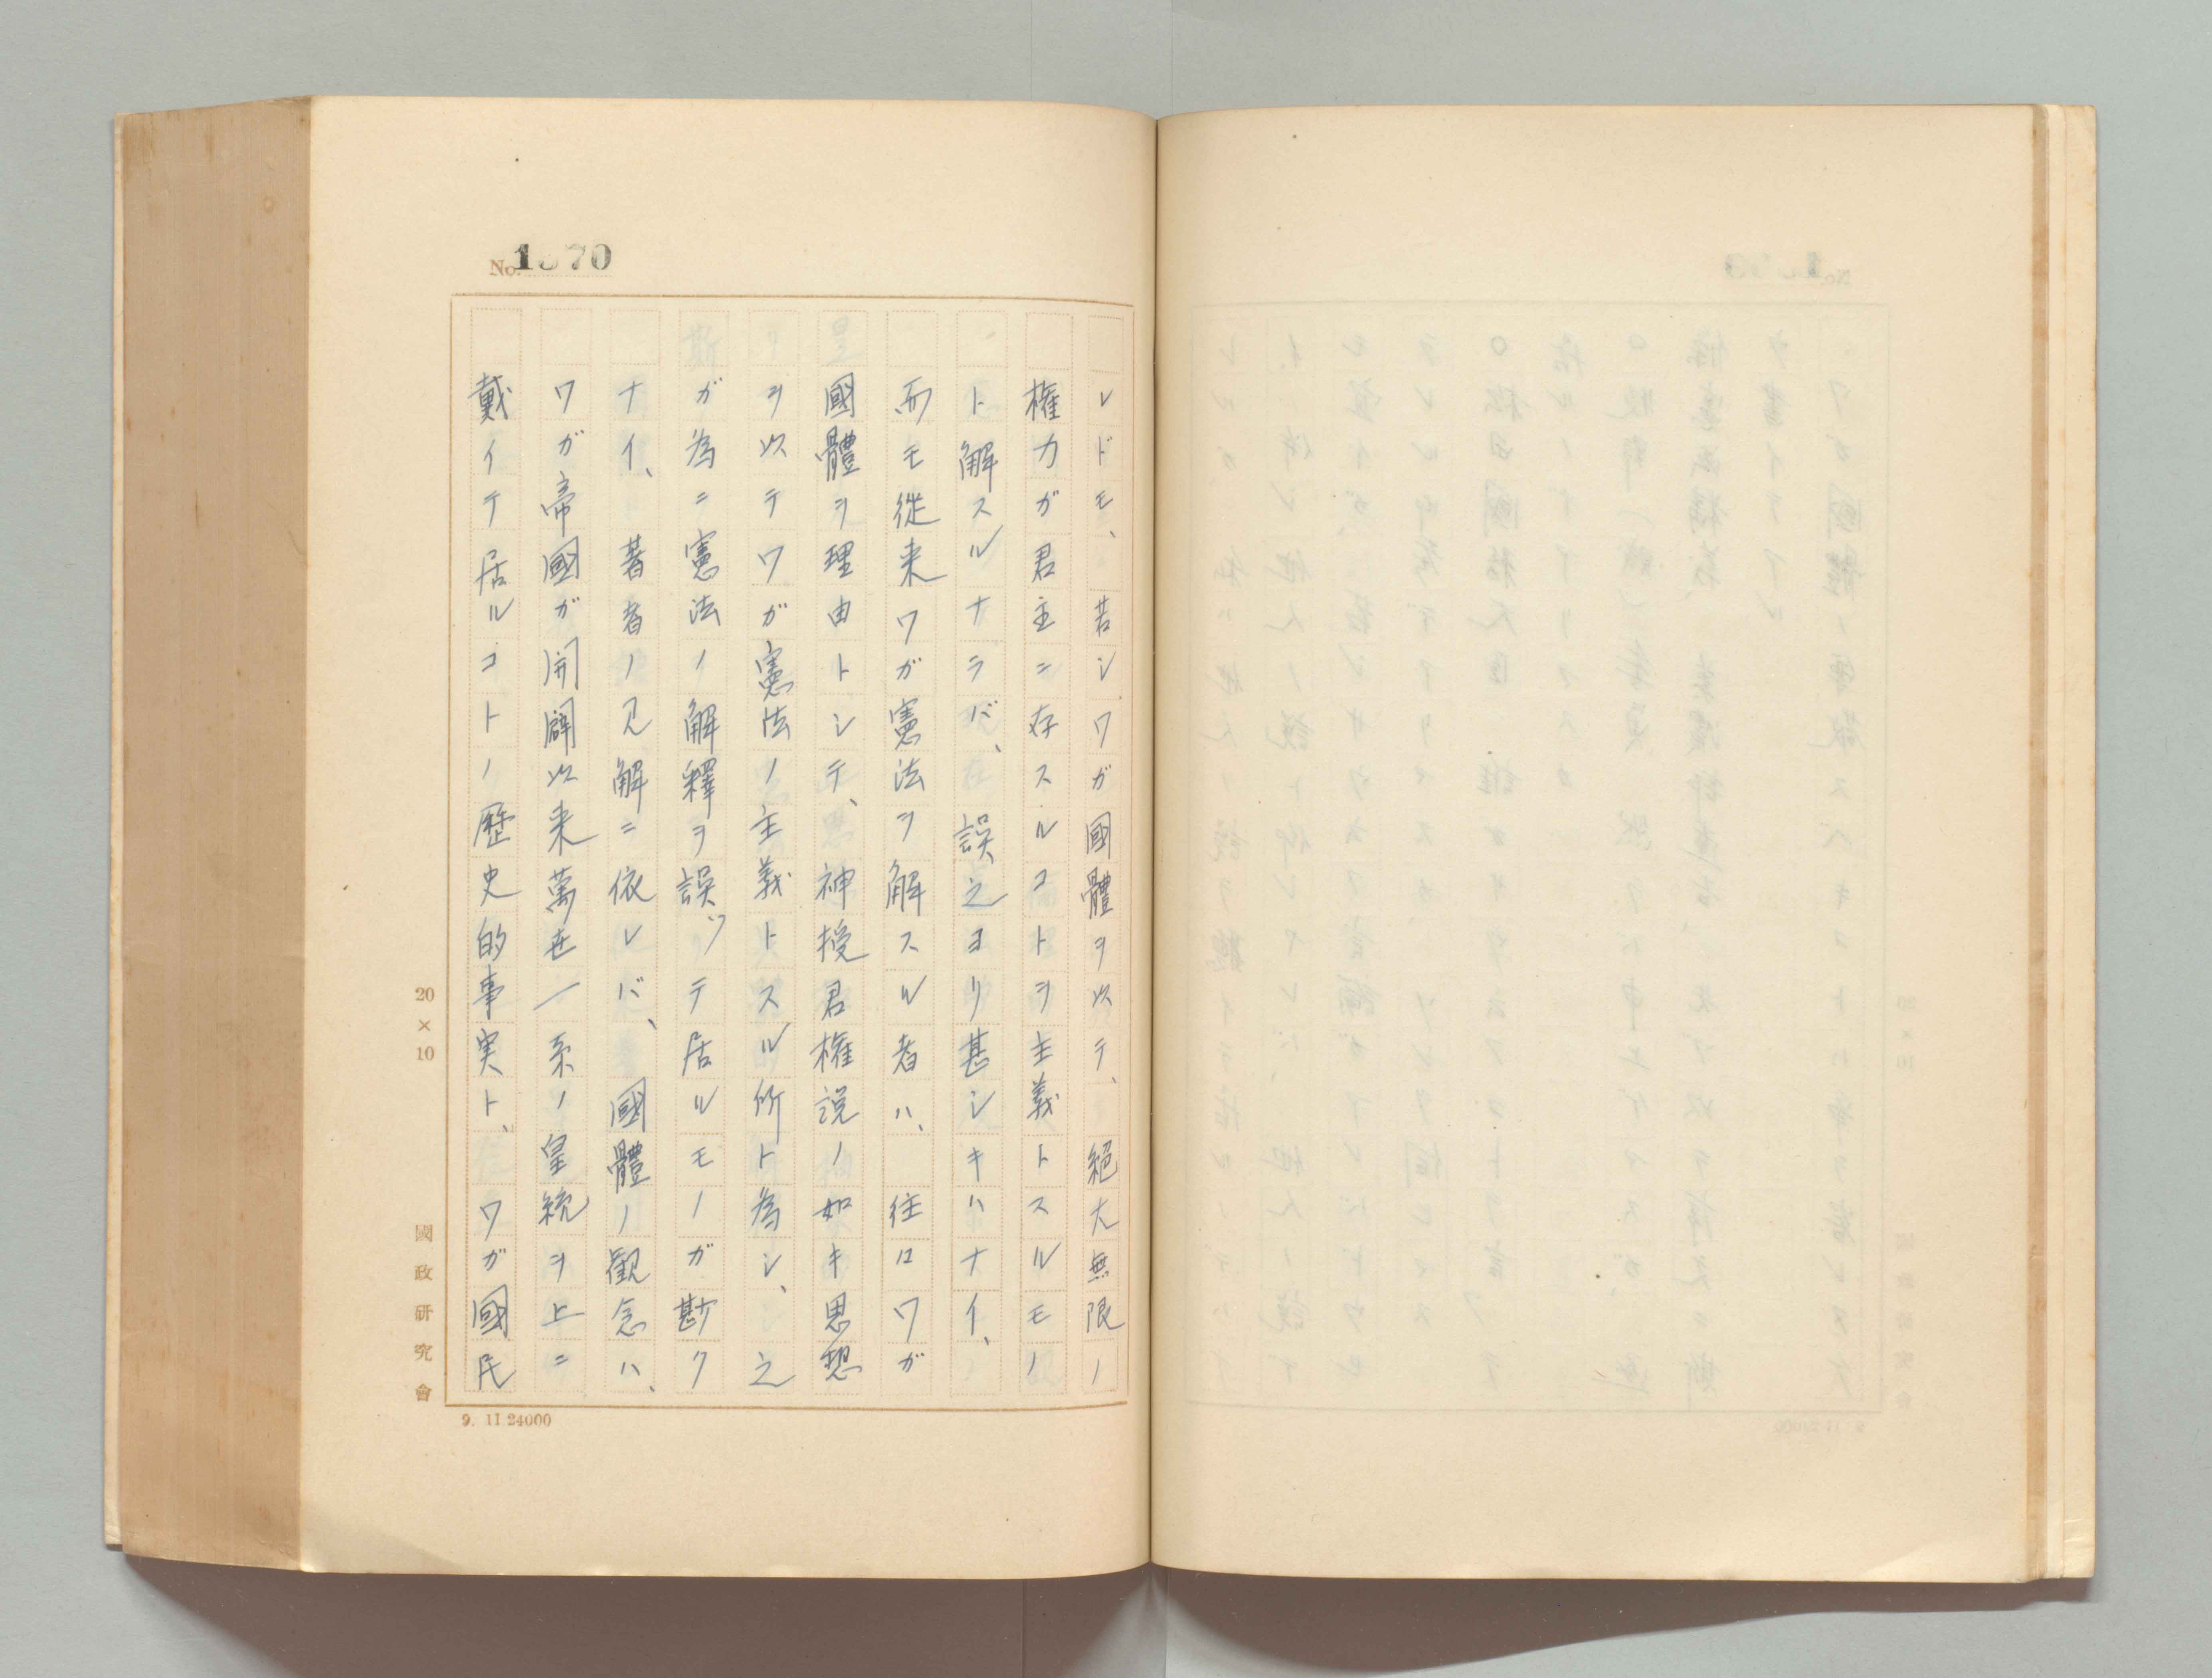 No. 1370
レドモ、若シワガ國體ヲ以テ、絕大無限ノ
権力ガ君主ニ存スルコトヲ主義トスルモノ
ト解スルナラバ、誤之ヨリ甚シキハナイ、
而モ從来ワガ憲法ヲ解スル者ハ、往々ワガ
國體ヲ理由トシテ、神授君権説ノ如キ思想
ヲ以テワガ憲法ノ主義トスル所ト為シ、之
ガ為ニ憲法ノ解釋ヲ誤ツテ居ルモノガ尠ク
ナイ、著者ノ見解ニ依レバ、國體ノ觀念ハ、
ワガ帝國ガ開闢以来萬世一系ノ皇統ヲ上ニ
戴イテ居ルコトノ歷史的事実ト、ワガ國民
20×10
國政研究會
9. 11 24000